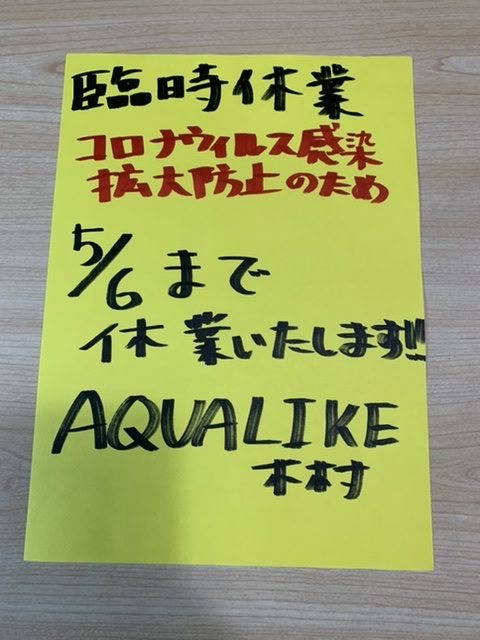 臨時休業
コロナウイルス感染
拡大防止のため
5/6まで
休業いたします!!
AQUALIKE
木村